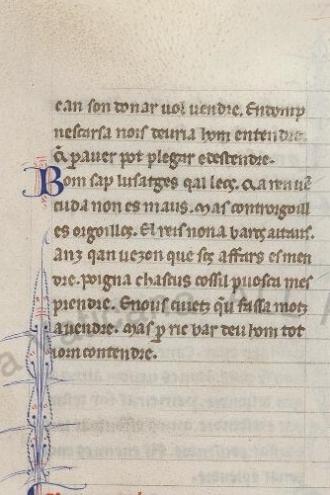 ean son donar uol uendre. En domp
nescarsa nois deuria hom entendre.
Q̃ p auer pot plegar e destendre.
Bom sap lusatges qai lecz. Q̃ a ren uẽ
cuda non es maus. Mas controrgoill
es orgoillcz. El reis non a barcz aitaus.
Anz qan uezon que sez affars es men
dre. poigna chascus cossil puosca mes
prendre. E nous cuietz qu fassa motz
auendre. Mas p ric bar deu hom tot
iorn contendre.